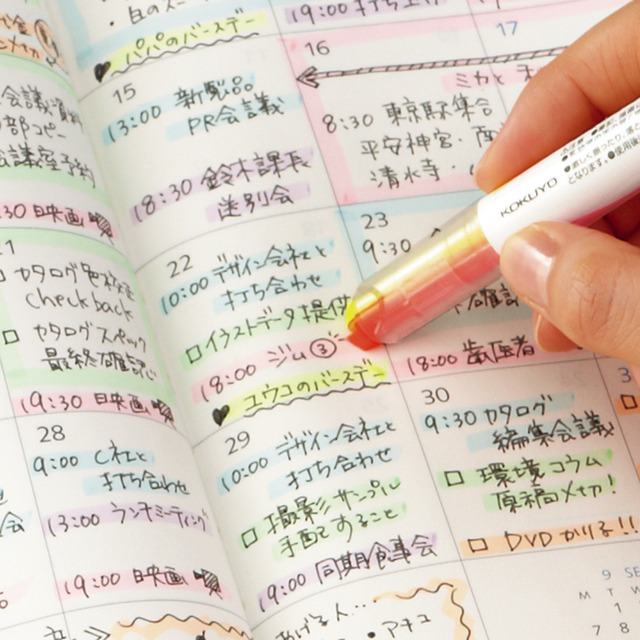 パパのバースデー
15
13:00 新製品
PR会議
18:30 鈴木課長
送別会
22
10:00 デザイン会社と
打ち合わせ
イラストデータ提供
18:00 ジム③
ユウコのバースデー
29
10:00 デザイン会社と
打ち合わせ
撮影サンプル
手配とすること
19:00 同期食事会
19:00 打ち上げ
16
17
8:30 東京駅集合
平安神宮・
清水寺・
23
9:30
18:00 歯医者
30
9:30 カタログ
編集会議
環境コラム
原稿〆切!
DVDかりる!!
9 SE
M T
1
7 8
カタログ
checkback
カタログスペック
最終確認
19:30 映画
28
9:00 C社と
打ち合わせ
13:00 ランチミーティング
19:00 映画
:30 映画
あげる人…
KOKUYO